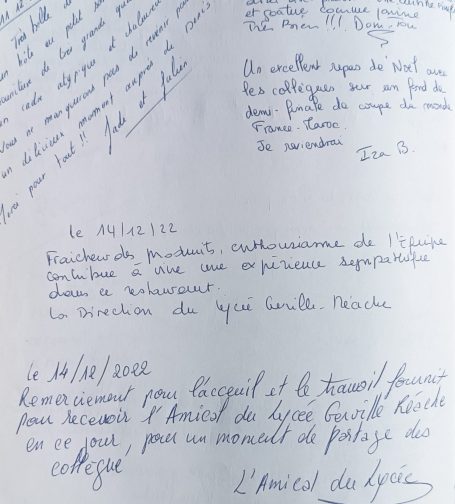 Très belle
un
de très grande
un cadre atypique et chaleureux
Nous ne manquerons pas de revenir pour
un délicieux moment auprès de Denis
Merci pour tout !! Jade et Julien
et goûtue comme Janine
Très Bien !!! Dom-
Un excellent repas de Noël avec
les collègues sur un fond de
demi-finale de coupe du monde
France-Maroc.
Je reviendrai
Iza B.
le 14/12/22
Fraicheur des produits, enthousiasme de l'Equipe
contribue à vivre une expérience sympathique
dans ce restaurant.
La Direction du Lycée Gerville-Réache
Le 14/12/2022
Remerciement pour l'acceuil et le travail fournit
pour recevoir l'Amical du Lycée Gerville Réache
en ce jour, pour un moment de partage des
collègue
L'Amical du Lycée